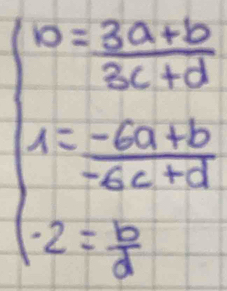 0 = 3a+b / 3c+d
1 = -6a+b / -6c+d
-2 = b / d